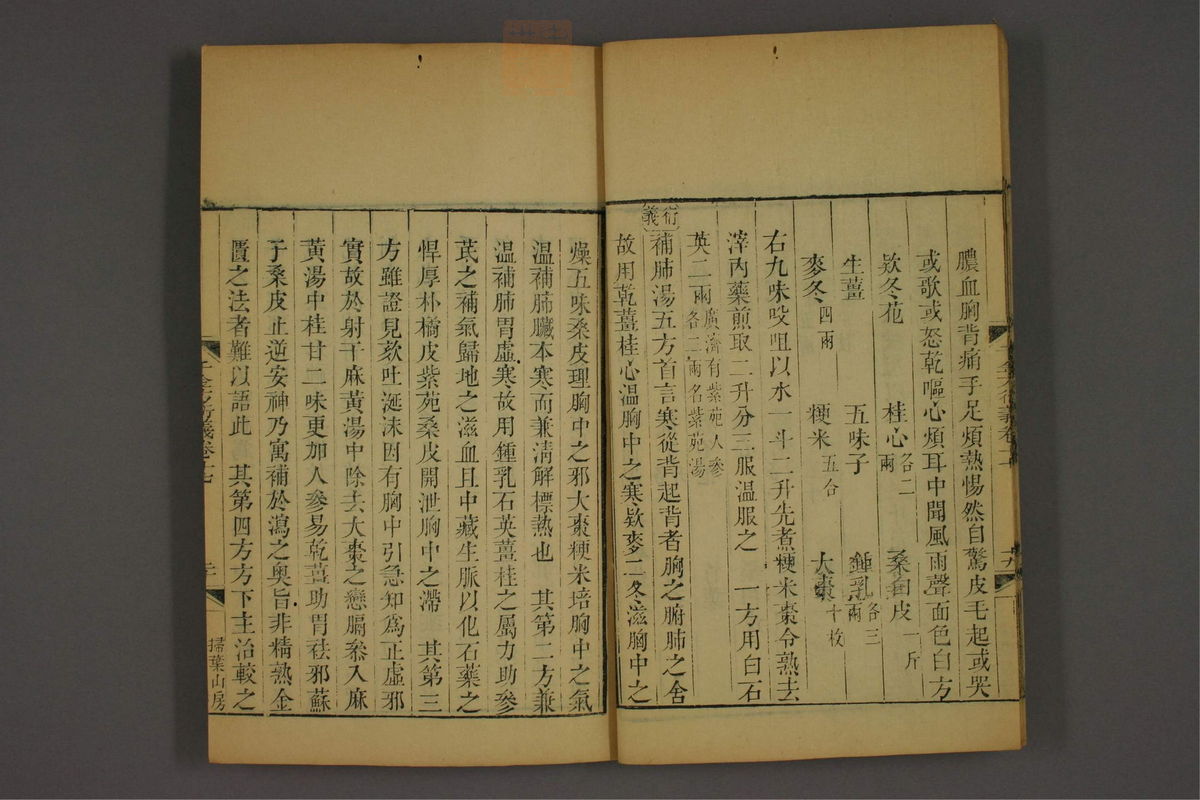 膿血胸背痛手足煩熱惕然自驚皮毛起或哭
或歌或怒乾嘔心煩耳中聞風雨聲面色白方
欵冬花 桂心各二兩 桑白皮一斤
生薑 五味子 鍾乳各三兩
麥冬四兩 粳米五合 大棗十枚
右九味㕮咀以水一斗二升先煮粳米棗令熟去
滓內藥煎取二升分三服溫服之 一方用白石
英二兩廣濟有紫苑人參各二兩名紫苑湯
衍義補肺湯五方首言寒從背起背者胸之腑肺之舍
故用乾薑桂心溫胸中之寒欵麥二冬滋胸中之
燥五味桑皮理胸中之邪大棗粳米培胸中之氣
溫補肺臟本寒而兼淸解標熱也 其第二方兼
溫補肺胃虛寒故用鍾乳石英薑桂之屬力助參
芪之補氣歸地之滋血且中藏生脈以化石藥之
悍厚朴橘皮紫苑桑皮開泄胸中之滯 其第三
方雖證見欬吐涎沫因有胸中引急知爲正虛邪
實故於射干麻黃湯中除去大棗之戀膈叅入麻
黃湯中桂甘二味更加人參易乾薑助胃祛邪蘇
子桑皮止逆安神乃寓補於瀉之奧旨非精熟金
匱之法者難以語此 其第四方方下主治較之
千金方衍義卷十七
掃葉山房